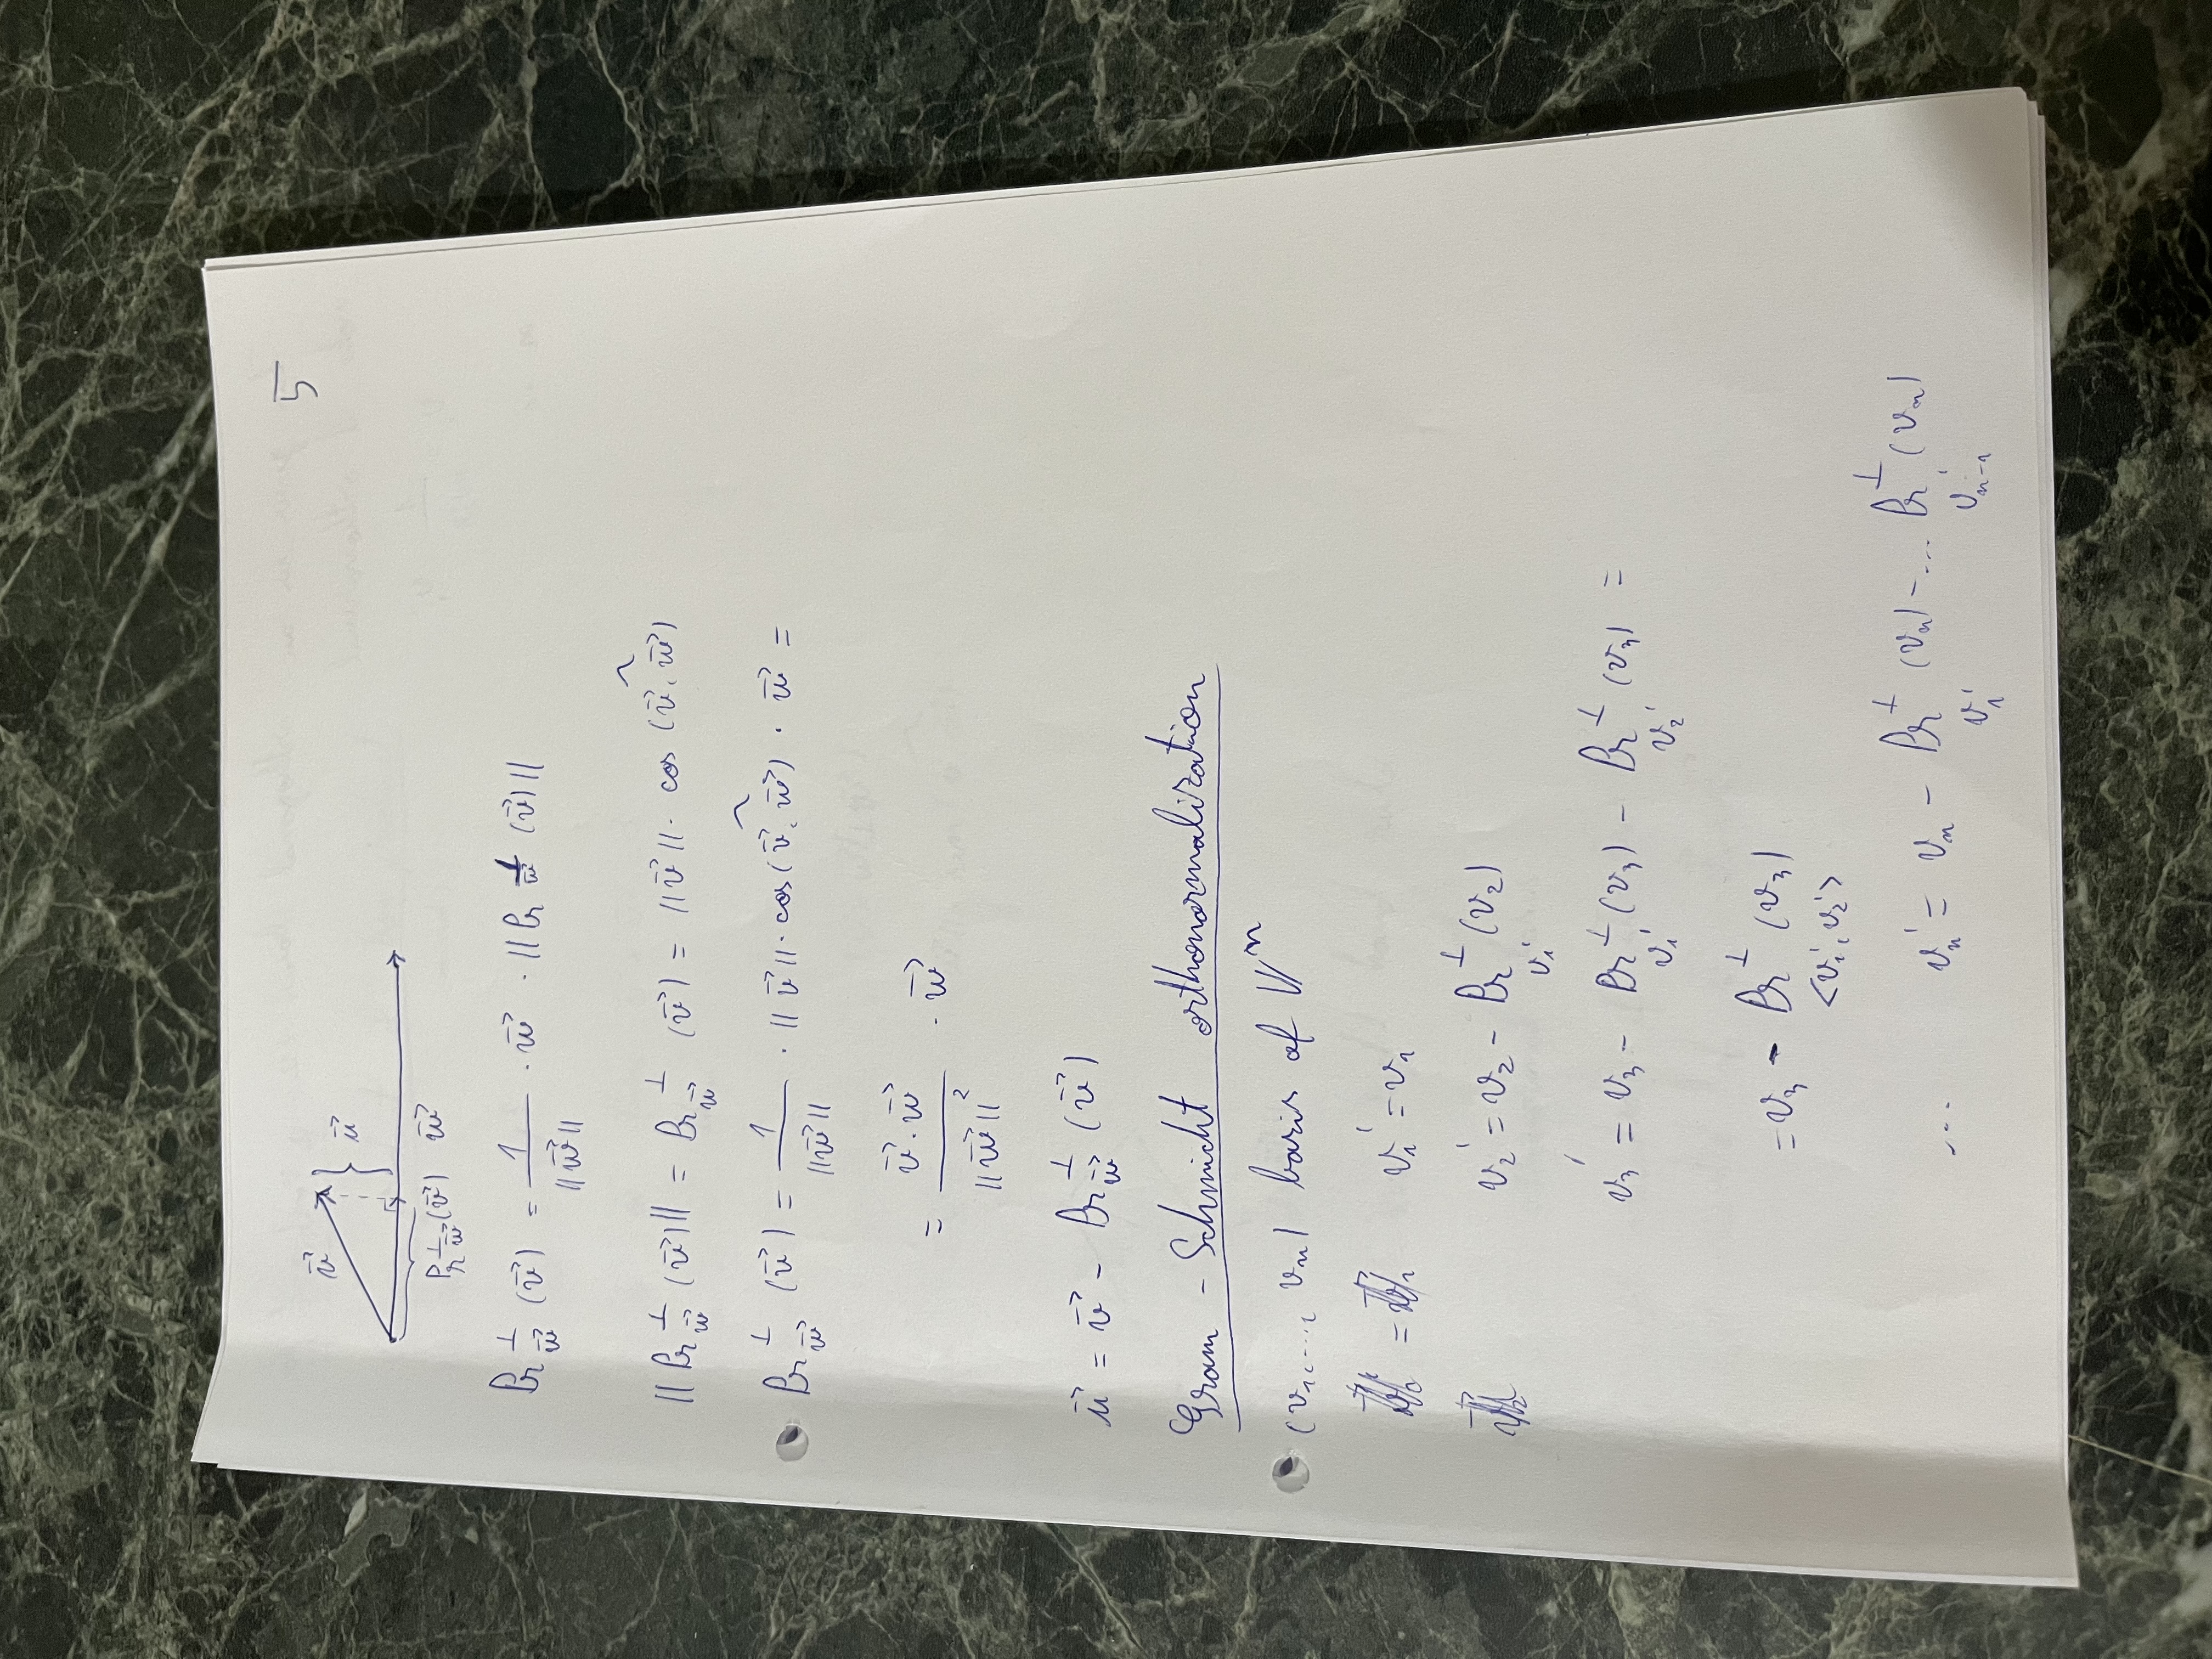 5
v⃗
u⃗
Pr⊥w⃗ (v⃗) w⃗
Pr⊥w⃗ (v⃗) = 1/||w⃗|| · w⃗ · ||Pr⊥w⃗ (v⃗)||
||Pr⊥w⃗ (v⃗)|| = Pr⊥w⃗ (v⃗) = ||v⃗|| · cos (v⃗, w⃗)
Pr⊥w⃗ (v⃗) = 1/||w⃗|| · ||v⃗|| · cos(v⃗, w⃗) · w⃗ =
= v⃗·w⃗/||w⃗||² · w⃗
u⃗ = v⃗ - Pr⊥w⃗ (v⃗)
Gram - Schmicht orthonormalization
(v₁, ..., vₙ) basis of Vⁿ
= v₁' = v₁
v₂' = v₂ - Pr⊥v₁' (v₂)
v₃' = v₃ - Pr⊥v₁' (v₃) - Pr⊥v₂' (v₃) =
= v₃ - Pr⊥<v₁', v₂'> (v₃)
... vₙ' = vₙ - Pr⊥v₁' (vₙ) - ... Pr⊥vₙ₋₁' (vₙ)